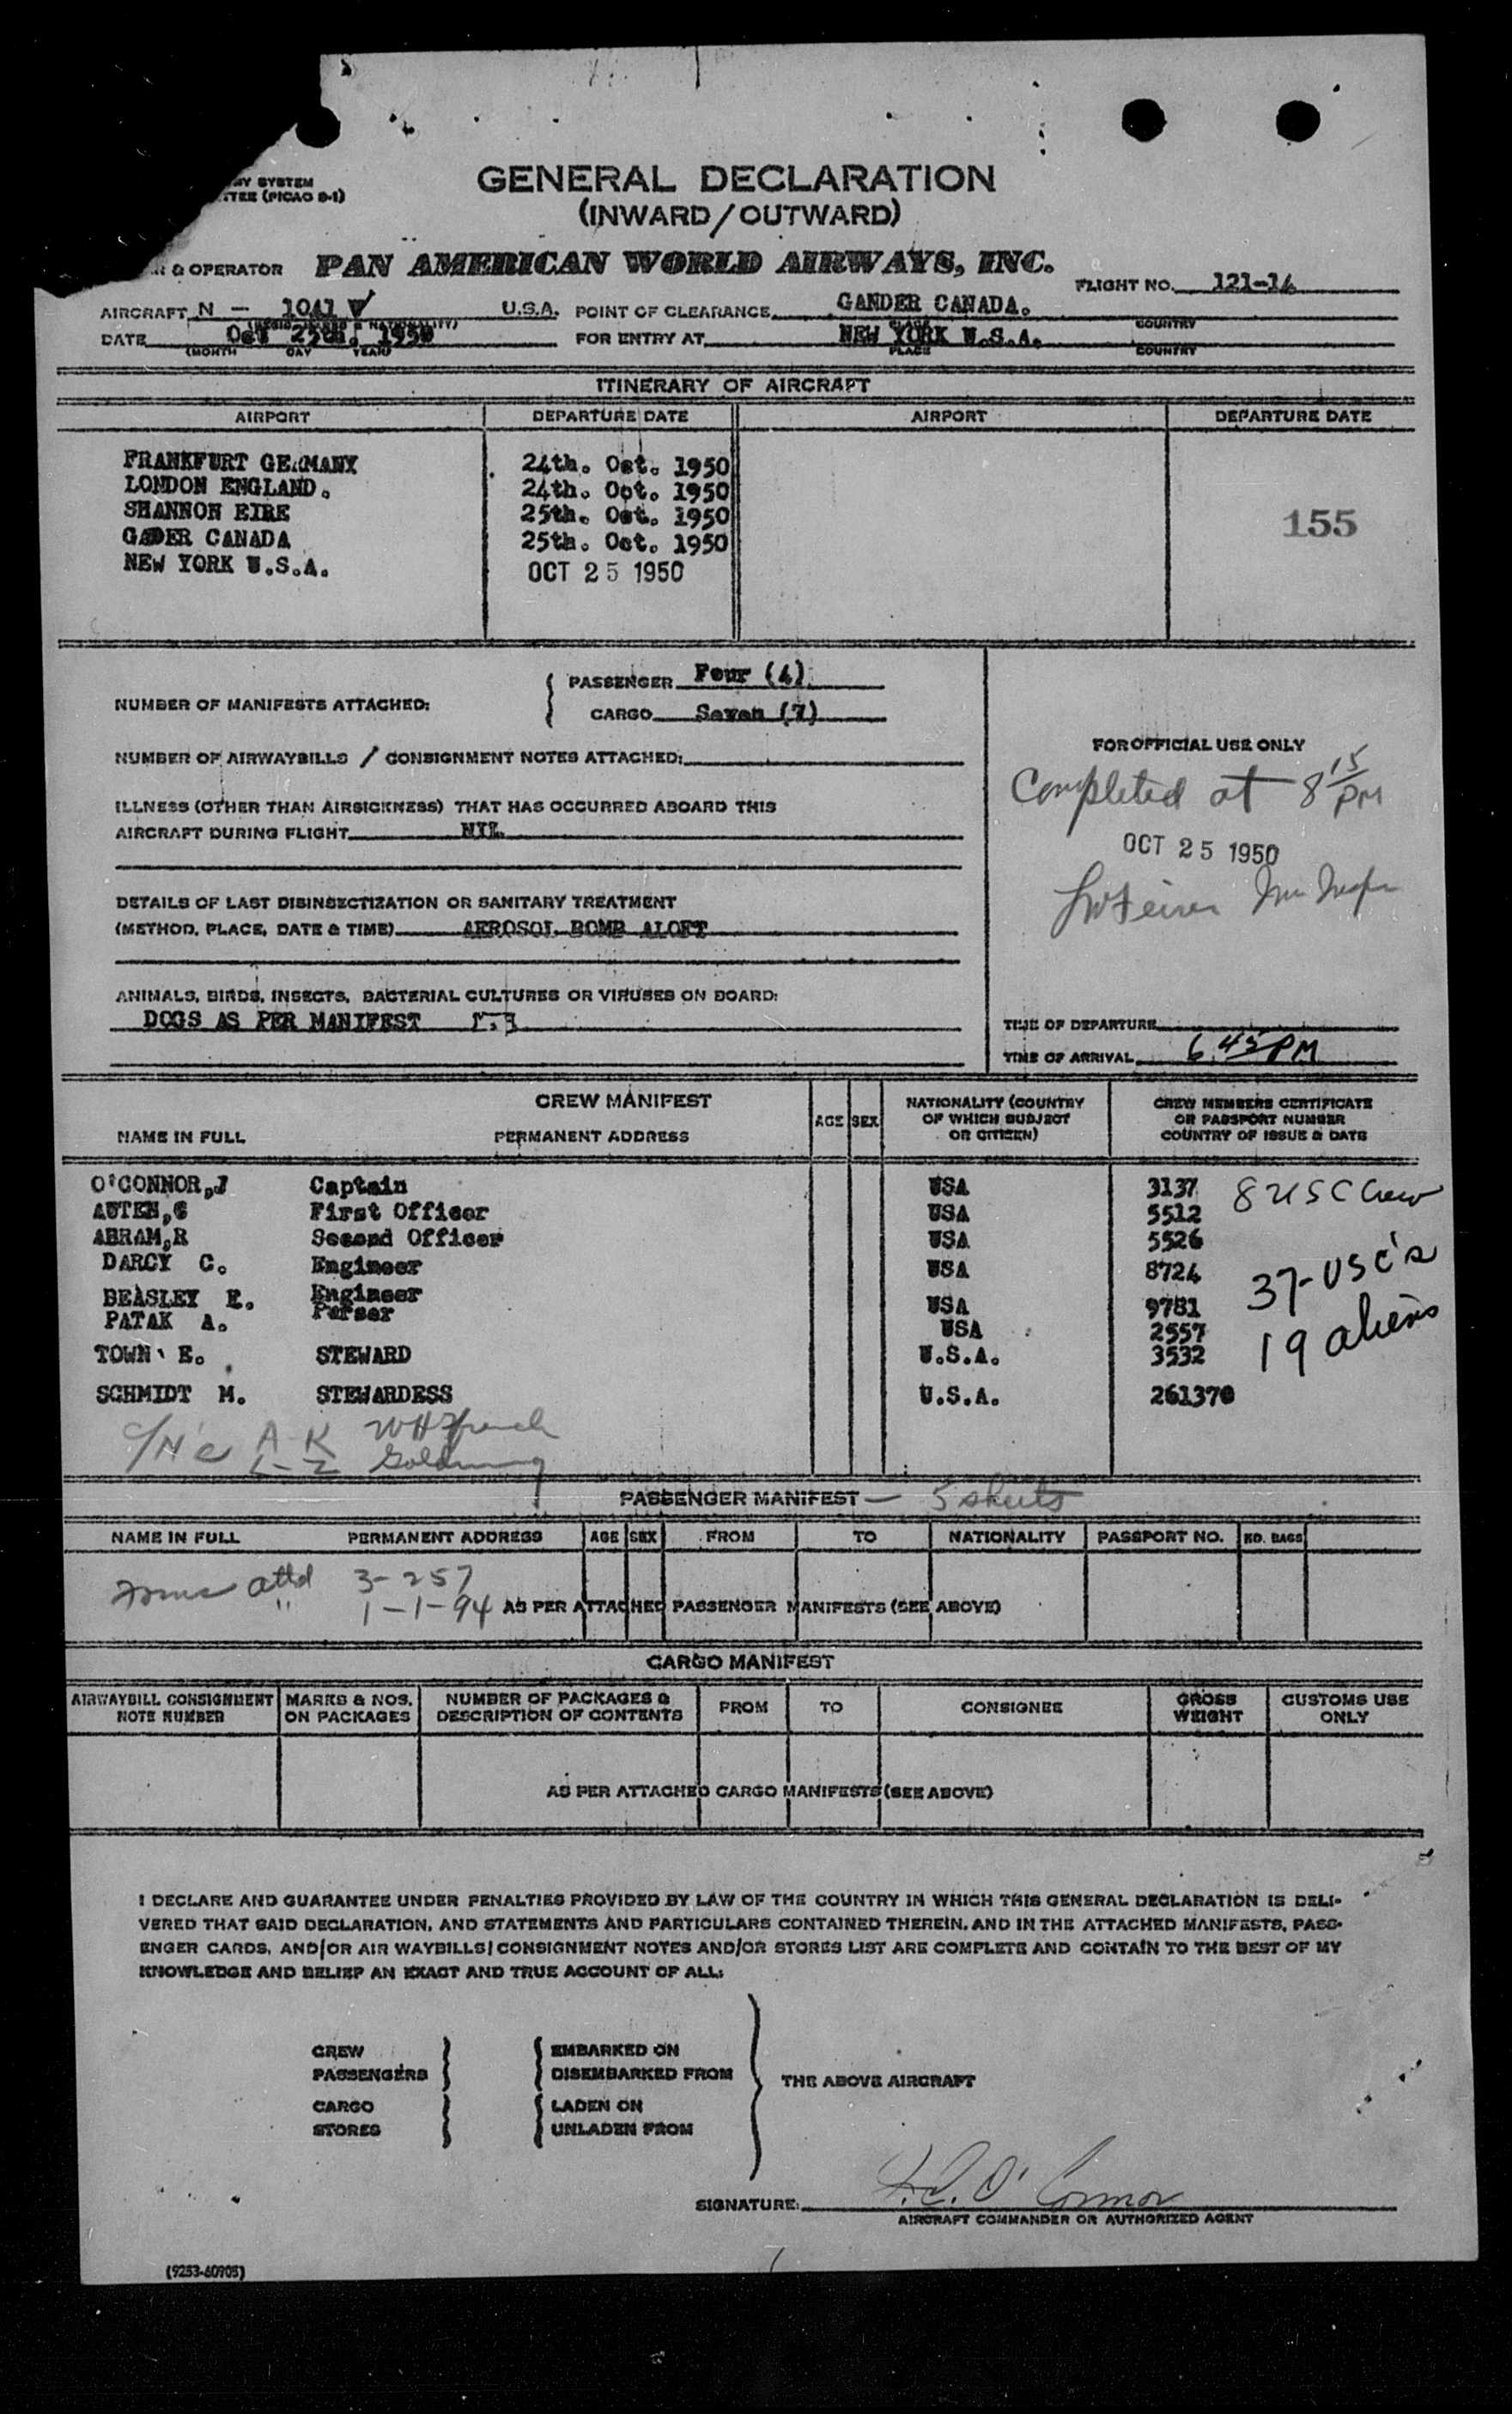 SYSTEM
(PICAO 9-1)
GENERAL DECLARATION
(INWARD/OUTWARD)
& OPERATOR PAN AMERICAN WORLD AIRWAYS, INC.
FLIGHT NO. 121-14
AIRCRAFT N - 1041 V U.S.A. POINT OF CLEARANCE GANDER CANADA.
DATE Oct 25th. 1950 FOR ENTRY AT NEW YORK U.S.A.
(MONTH DAY YEAR) PLACE COUNTRY
ITINERARY OF AIRCRAFT
AIRPORT DEPARTURE DATE AIRPORT DEPARTURE DATE
FRANKFURT GERMANY 24th. Oct. 1950
LONDON ENGLAND. 24th. Oct. 1950
SHANNON EIRE 25th. Oct. 1950
155
GADER CANADA 25th. Oct. 1950
NEW YORK U.S.A. OCT 25 1950
NUMBER OF MANIFESTS ATTACHED:
PASSENGER Four (4)
CARGO Seven (7)
NUMBER OF AIRWAYBILLS / CONSIGNMENT NOTES ATTACHED:
ILLNESS (OTHER THAN AIRSICKNESS) THAT HAS OCCURRED ABOARD THIS
AIRCRAFT DURING FLIGHT NIL
DETAILS OF LAST DISINSECTIZATION OR SANITARY TREATMENT
(METHOD, PLACE, DATE & TIME) AEROSOL BOMB ALOFT
ANIMALS, BIRDS, INSECTS, BACTERIAL CULTURES OR VIRUSES ON BOARD:
DOGS AS PER MANIFEST
FOR OFFICIAL USE ONLY
Completed at 8 15 PM
OCT 25 1950
TIME OF DEPARTURE
TIME OF ARRIVAL 6 45 PM
CREW MANIFEST
NAME IN FULL PERMANENT ADDRESS AGE SEX
NATIONALITY (COUNTRY
OF WHICH SUBJECT
OR CITIZEN)
CREW MEMBERS CERTIFICATE
OR PASSPORT NUMBER
COUNTRY OF ISSUE & DATE
O'CONNOR,J Captain USA 3137 8 USC Crew
AUTEN,G First Officer USA 5512
ABRAM,R Second Officer USA 5526
DARCY C. Engineer USA 8724 37-USC's
BEASLEY E. Engineer USA 9781
PATAK A. Purser USA 2557 19 aliens
TOWN E. STEWARD U.S.A. 3532
SCHMIDT M. STEWARDESS U.S.A. 261370
A-K
L-Z
PASSENGER MANIFEST — 5 sheets
NAME IN FULL PERMANENT ADDRESS AGE SEX FROM TO NATIONALITY PASSPORT NO. NO. BAGS
attd 3-257
" 1-1-94 AS PER ATTACHED PASSENGER MANIFESTS (SEE ABOVE)
CARGO MANIFEST
AIRWAYBILL CONSIGNMENT NOTE NUMBER
MARKS & NOS. ON PACKAGES
NUMBER OF PACKAGES & DESCRIPTION OF CONTENTS
FROM TO CONSIGNEE
GROSS WEIGHT
CUSTOMS USE ONLY
AS PER ATTACHED CARGO MANIFESTS (SEE ABOVE)
I DECLARE AND GUARANTEE UNDER PENALTIES PROVIDED BY LAW OF THE COUNTRY IN WHICH THIS GENERAL DECLARATION IS DELI-
VERED THAT SAID DECLARATION, AND STATEMENTS AND PARTICULARS CONTAINED THEREIN, AND IN THE ATTACHED MANIFESTS, PASS-
ENGER CARDS, AND/OR AIR WAYBILLS/CONSIGNMENT NOTES AND/OR STORES LIST ARE COMPLETE AND CONTAIN TO THE BEST OF MY
KNOWLEDGE AND BELIEF AN EXACT AND TRUE ACCOUNT OF ALL:
CREW EMBARKED ON
PASSENGERS DISEMBARKED FROM
THE ABOVE AIRCRAFT
CARGO LADEN ON
STORES UNLADEN FROM
SIGNATURE: O'Connor
AIRCRAFT COMMANDER OR AUTHORIZED AGENT
(9253-60905)